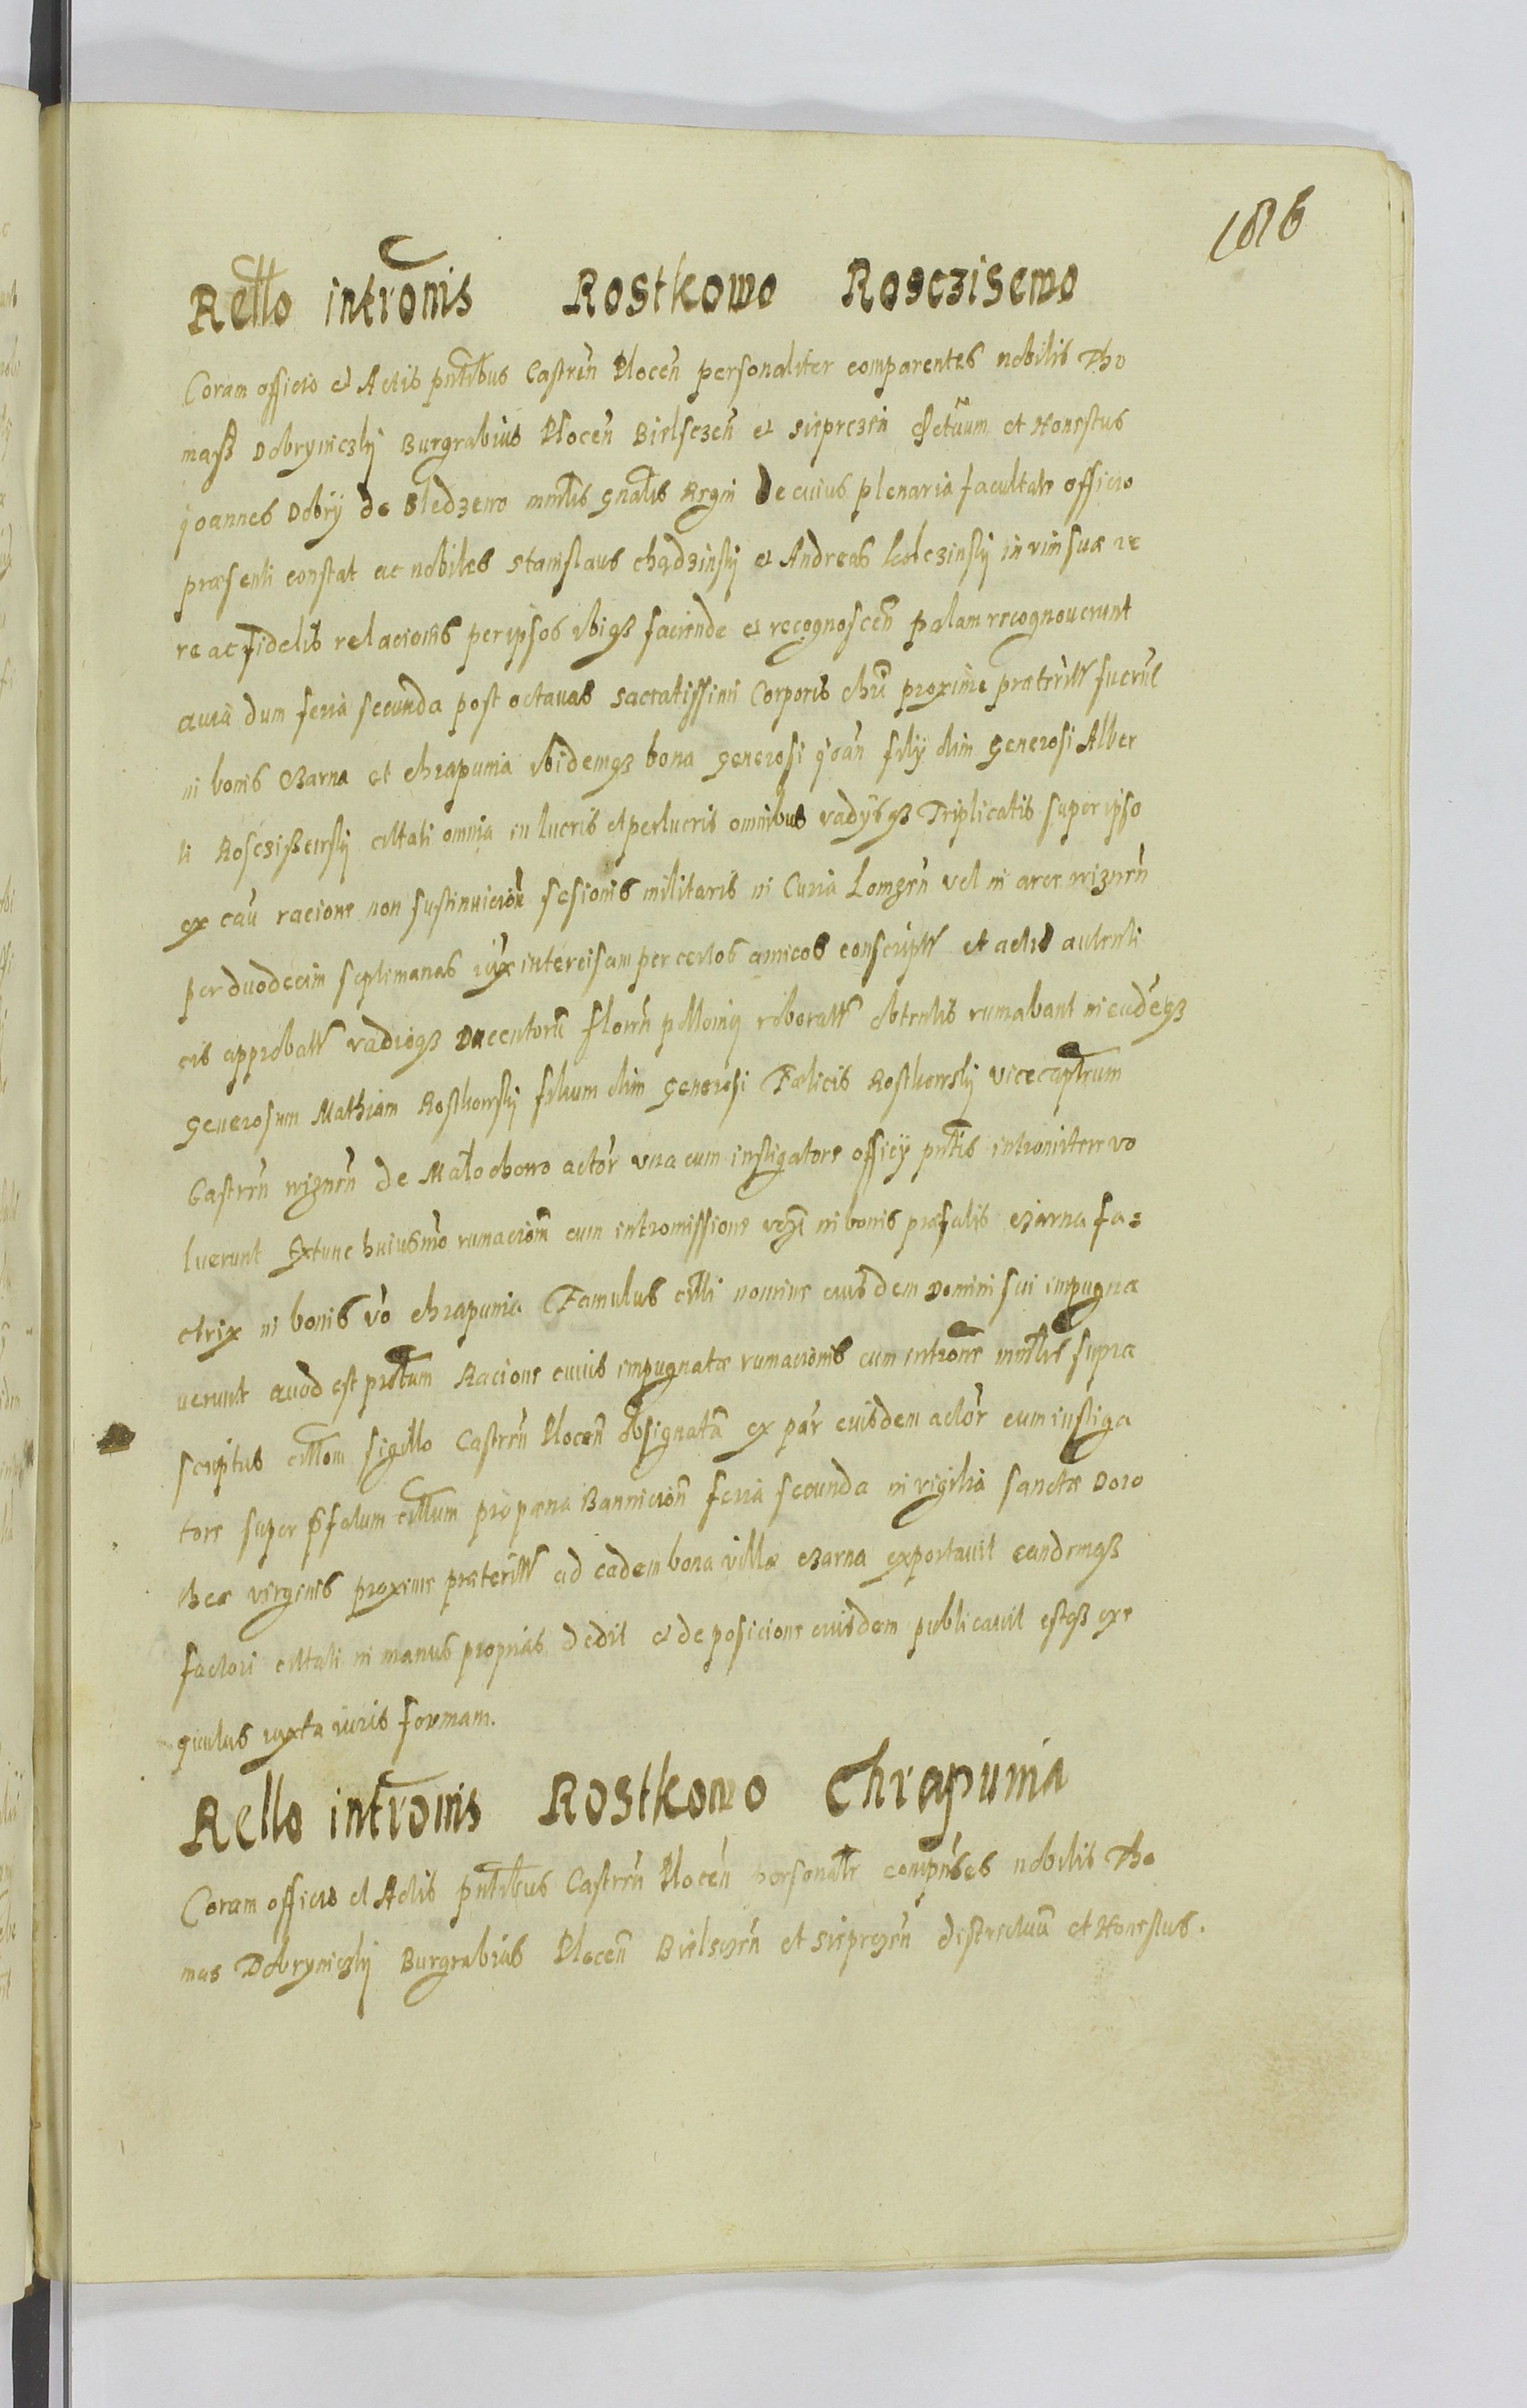 186
Rello intromis Rostkowo Rosczisewo
Coram officio et Actis pntibus Castren Plocen personaliter comparentes nobilis Tho
masz Dobryniczky Burgrabius Plocen Bielsczen et Sieprczen et Honestus
Joannes Dobry de Bledzewo mnlis gnalis Regni De cuius plenaria facultate officio
præsenti constat ac nobiles Stanislaus chądzinsky et Andreas Kolczinsky in vim suæ ve
re ac fidelis relacionis per ipsos ubiqz faciende et recognoscen palam recognoverunt
quia dum feria secunda post octavas sacratissimi Corporis chri proxime præteritt fuerut
in bonis Czarna et chrapunia ibidemqz bona generosi Joan filÿ olim generosi Alber
ti Rosczissewsky cittati omnia in lucris et perlucris omnibus vadÿsqz Triplicatis super ipso
ex cau racione non sustinucion sesionis militaris in Curia Lomzen vel in arce wiznen
per duodecim septimanas iux intercisam per certos amicos conscriptt et actis autenti
cis approbatt vadioqz Ducentoru floren polloniq roboratt obtentis rumabant in eadeqz
generosum Mathiam Rostkowsky filium olim generosi Fælicis Rostkowsky vicecaptneum
Castren wiznen de Małochowo actor una cum instigatore officÿ pntis intromittere vo
luerunt Extunc huiusmo rumaciom cum intromissione in bonis præfatis czarna fa=
ctrix in bonis vo chrapunia Famulus citti nomine eiusdem Domini sui impugna
verunt quod est prottum Racione cuius impugnatæ rumacionis cum introne mnlis supra
scriptus cittom sigillo Castren Plocen obsignata ex par eiusdem actor cum instiga
tore super pfatum cittum pro pæna Bannicion feria secunda in vigilia sanctæ Doro
theæ virginis proxime præteritt ad eadem bona villæ czarna exportavit eandemqz
factori cittati in manus proprias dedit et de posicione eiusdem publicavit estqz exe
quutus iuxta iuris formam.
Rello intromis Rostkowo Chrapunia
Coram officio et Actis pntibus Castren Plocen personalr compntes nobilis Tho
mas Dobryniczky Burgrabius Plocen Bielsczen et Sieprczen districtuu et Honestus.